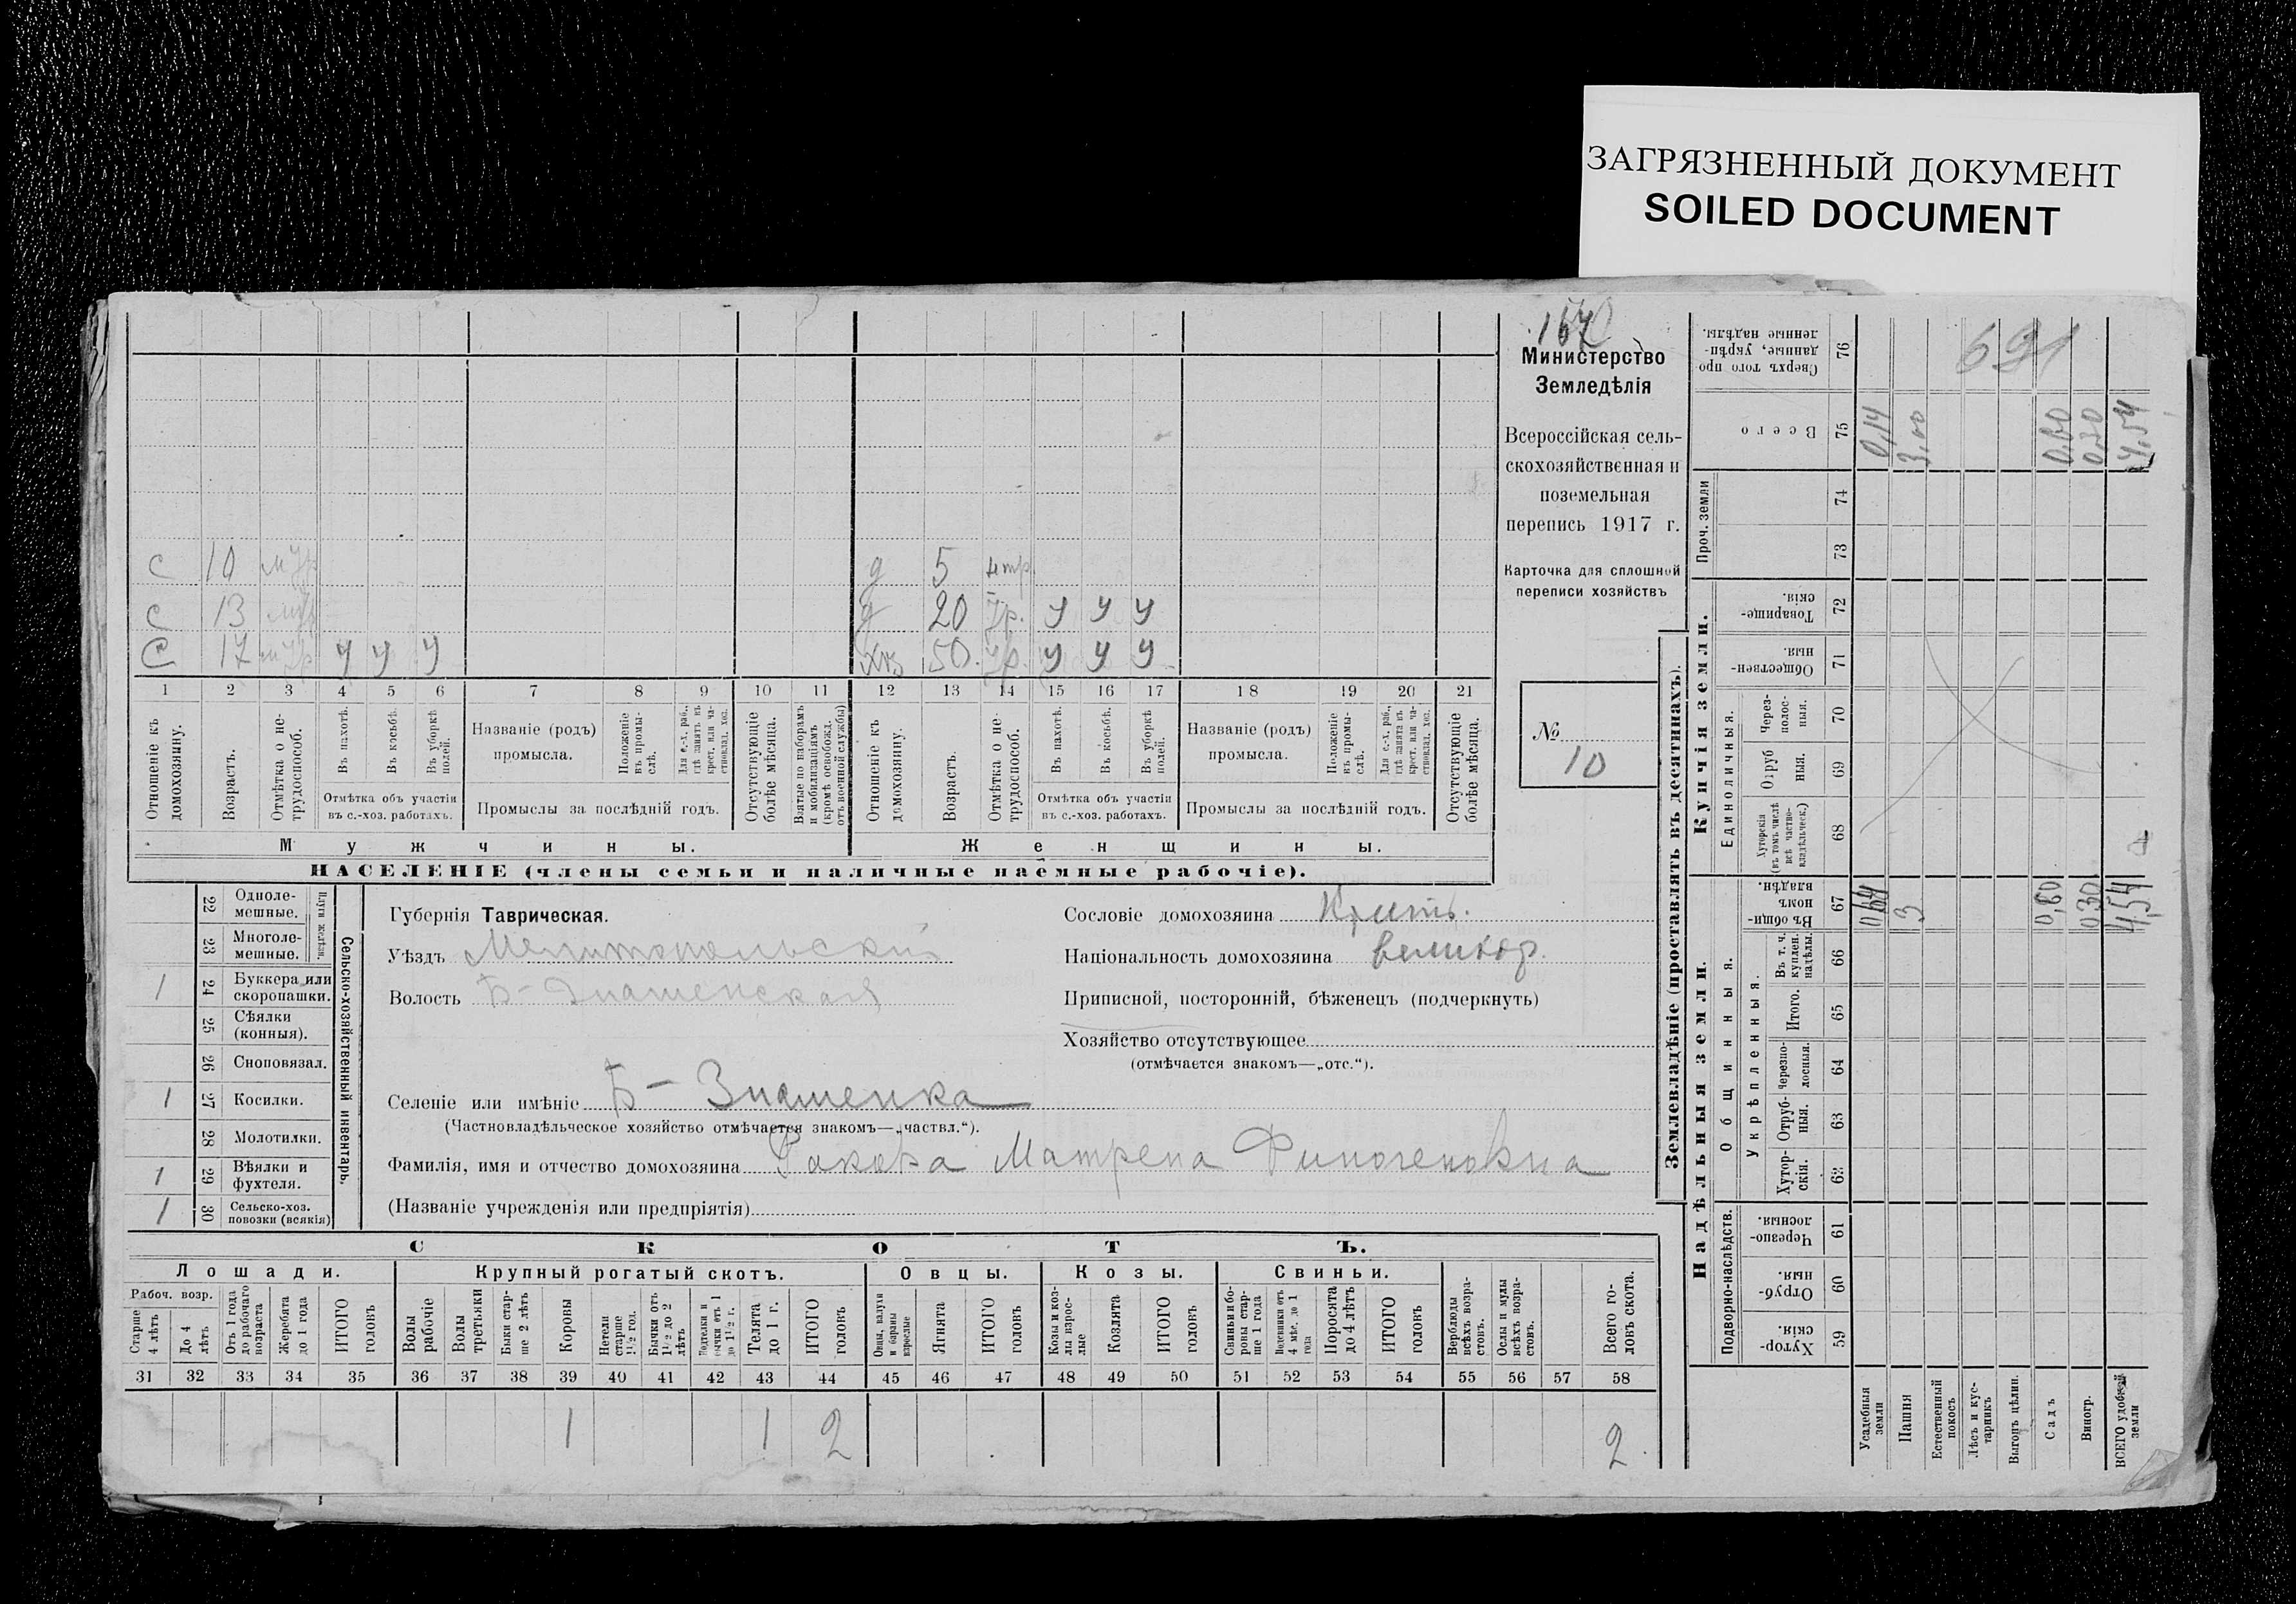 ЗАГРЯЗНЕННЫЙ ДОКУМЕНТ
SOILED DOCUMENT
167
Министерство
Земледѣлія
Всероссійская сель-
скохозяйственная и
поземельная
перепись 1917 г.
Карточка для сплошной
переписи хозяйствъ
№
10
с 10 д 5 нтр.
с 13 д 20 у у у
с 17 у у у хоз 50. у у у
1 2 3 4 5 6 7 8 9 10 11 12 13 14 15 16 17 18 19 20 21
Отношеніе къ домохозяину.
Возрастъ.
Отмѣтка о не-трудоспособ.
Въ пахотѣ.
Въ косьбѣ.
Въ уборкѣ полей.
Отмѣтка объ участіи
въ с.-хоз. работахъ.
Названіе (родъ)
промысла.
Положеніе въ промы-слѣ.
Для с.-х. раб., гдѣ занятъ въ крест. или ча-ствовлад. хоз.
Промыслы за послѣдній годъ.
Отсутствующіе болѣе мѣсяца.
Взятые по наборамъ и мобилизаціямъ (кромѣ освобожд. отъ военной службы)
Отношеніе къ домохозяину.
Возрастъ.
Отмѣтка о не-трудоспособ.
Въ пахотѣ.
Въ косьбѣ.
Въ уборкѣ полей.
Отмѣтка объ участіи
въ с.-хоз. работахъ.
Названіе (родъ)
промысла.
Положеніе въ промы-слѣ.
Для с.-х. раб., гдѣ занята въ крест. или ча-ствовлад. хоз.
Промыслы за послѣдній годъ.
Отсутствующіе болѣе мѣсяца.
Мужчины. Женщины.
НАСЕЛЕНІЕ (члены семьи и наличные наемные рабочіе).
22 Одноле-мешные.
23 Многоле-мешные.
Плуги желѣзн.
1 24 Буккера или скоропашки.
25 Сѣялки (конныя).
26 Сноповязал.
1 27 Косилки.
28 Молотилки.
1 29 Вѣялки и фухтеля.
1 30 Сельско-хоз. повозки (всякія)
Сельско-хозяйственный инвентарь.
Губернія Таврическая.
Уѣздъ Мелитопольскій
Волость Б-Знаменская
Сословіе домохозяина Крест.
Національность домохозяина великор.
Приписной, посторонній, бѣженецъ (подчеркнуть)
Хозяйство отсутствующее
(отмѣчается знакомъ—„отс.“).
Селеніе или имѣніе Б- Знаменка
(Частновладѣльческое хозяйство отмѣчается знакомъ—„частвл.“).
Фамилія, имя и отчество домохозяина Ракова Матрена Финогеновна
(Названіе учрежденія или предпріятія)
СКОТЪ.
Лошади. Крупный рогатый скотъ. Овцы. Козы. Свиньи.
Рабоч. возр.
Старше 4 лѣтъ
До 4 лѣтъ
Отъ 1 года до рабочаго возраста
Жеребята до 1 года
ИТОГО головъ
Волы рабочіе
Волы третьяки
Быки стар-ше 2 лѣтъ
Коровы
Нетели старше 1½ год.
Бычки отъ 1½ до 2 лѣтъ
Подтелки и бычки отъ 1 до 1½ г.
Телята до 1 г.
ИТОГО головъ
Овцы, валухи и бараны взрослые
Ягнята
ИТОГО головъ
Козы и коз-лы взрос-лые
Козлята
ИТОГО головъ
Свиньи и бо-ровы стар-ше 1 года
Подсвинки отъ 4 мѣс. до 1 года
Поросята до 4 лѣтъ
ИТОГО головъ
Верблюды всѣхъ возра-стовъ.
Ослы и мулы всѣхъ возра-стовъ.
Всего го-ловъ скота.
31 32 33 34 35 36 37 38 39 40 41 42 43 44 45 46 47 48 49 50 51 52 53 54 55 56 57 58
1 1 2 2
Землевладѣніе (проставлять въ десятинахъ).
Надѣльныя земли. Купчія земли.
Подворно-наслѣдств.
Общинныя.
Укрѣпленныя.
Единоличныя.
Проч. земли
Сверхъ того про-данные, укрѣп-ленные надѣлы. 76
691
Всего 75 0,14 3,00 0,60 0,30 4,54
74
73
Товарище-скія. 72
Обществен-ныя. 71
Через-полос-ныя. 70
Отруб ныя. 69
Хуторскія (въ томъ числѣ всѣ частно-владѣльческ.) 68
Въ общин-номъ владѣн. 67 0,64 3 0,60 0,30 4,54
Въ т. ч. куплен. надѣлы. 66
Итого. 65
Черезпо-лосныя. 64
Отруб-ныя. 63
Хутор-скія. 62
Черезпо-лосныя. 61
Отруб-ныя. 60
Хутор-скія. 59
Усадебныя земли
Пашня
Естественный покосъ
Лѣсъ и кус-тарникъ
Выгонъ цѣлин.
Садъ
Виногр.
ВСЕГО удобной земли